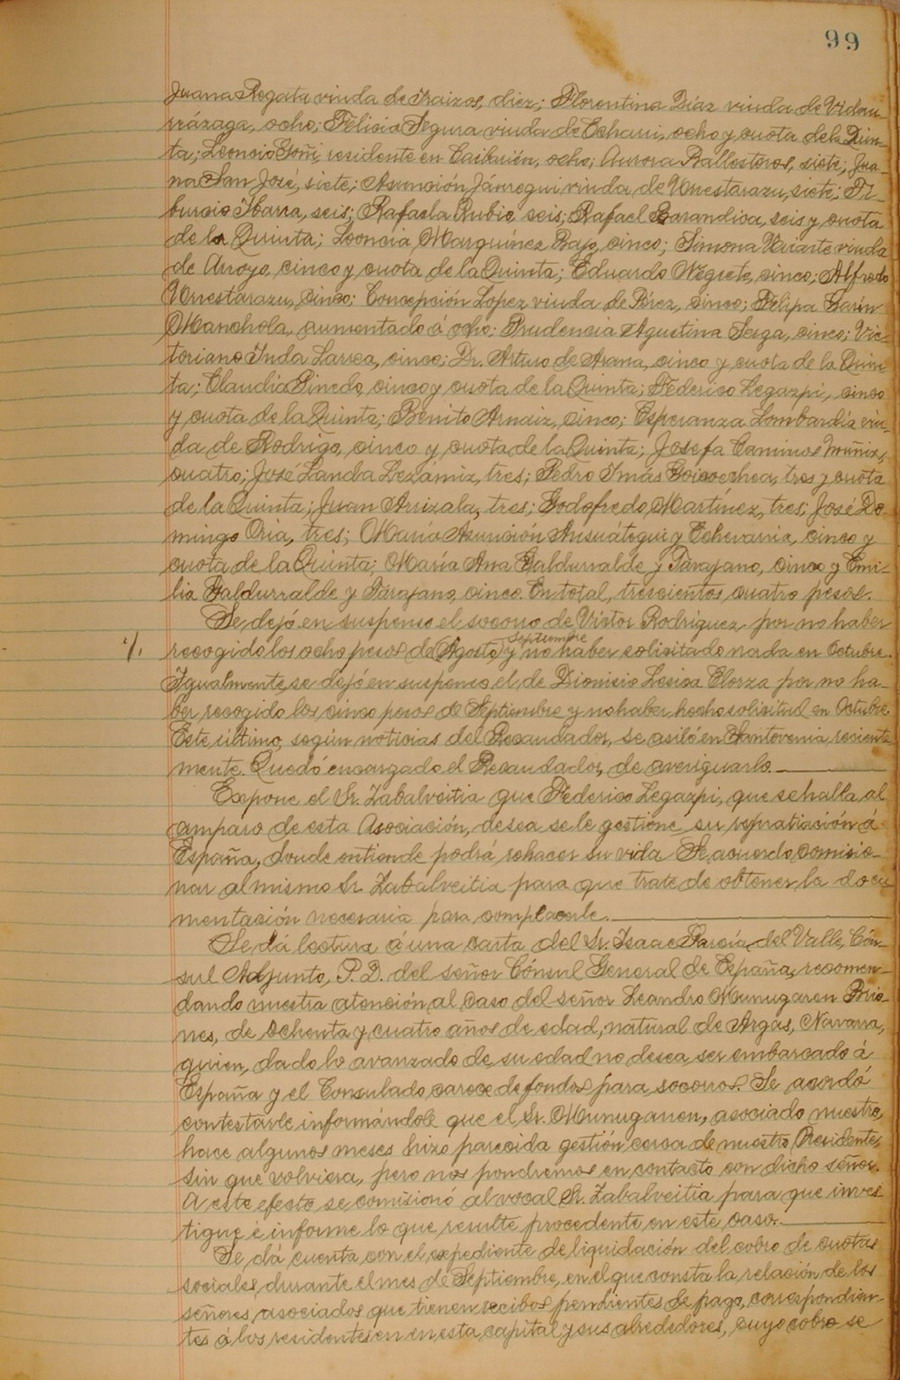 99
Juana Regata viuda de Araizos, diez; Florentina Díaz viuda de Vidau-
rrázaga, ocho; Felicia Segura viuda de Echaui, ocho y cuota de la Quin-
ta; Leoncio Goñi, residente en Caibarién, ocho; Aurora Ballesteros, siete; Jua-
na San José, siete; Asunción Jáuregui viuda de Urrestarazu, siete; Ti-
burcio Ibarra, seis; Rafaela Rubio seis; Rafael Garandica, seis y cuota
de la Quinta; Leoncia Marquínez Rajo, cinco; Simona Uriarte viuda
de Arroyo, cinco y cuota de la Quinta; Eduardo Negrete, cinco; Alfredo
Urrestarazu, cinco; Concepción López viuda de Pérez, cinco; Felipa Garin
Manchola, aumentado á ocho; Prudencia Agustina Isaga, cinco; Vic-
toriano Inda Larrea, cinco; Dr. Arturo de Arana, cinco y cuota de la Quin-
ta; Claudia Pinedo, cinco y cuota de la Quinta; Federico Legazpi, cinco
y cuota de la Quinta; Benito Arnaiz, cinco; Esperanza Lombardía viu-
da de Rodrigo, cinco y cuota de la Quinta; Josefa Caminos Muñiz,
cuatro; José Landa Lezámiz, tres; Pedro Imás Goicoechea, tres y cuota
de la Quinta; Juan Arrizala, tres; Godofredo Martínez, tres; José Do-
mingo Oria, tres; María Asunción Ansuátegui y Echevarria, cinco y
cuota de la Quinta; María Ana Galdurralde y Párajano, cinco y Emi-
lia Galdurralde y Párajano, cinco. En total, trescientos cuatro pesos.
Se dejó en suspenso el socorro de Víctor Rodríguez por no haber
recogido los ocho pesos de Agosto y Septiembre no haber solicitado nada en Octubre.
Igualmente, se dejó en suspenso el de Dionisio Lesica Elorza por no ha-
ber recogido los cinco pesos de Septiembre y no haber hecho solicitud en Octubre.
Este último, según noticias del Recaudador, se asiló en Santovenia reciente
mente. Quedó encargado el Recaudador, de averiguarlo.
Expone el Sr. Zabalveitia que Federico Legazpi, que se halla al
amparo de esta Asociación, desea se le gestione su repratiación á
España, donde entiende podrá rehacer su vida. Se acuerda comisio-
nar al mismo Sr. Zabalveitia para que trate de obtener la docu
mentación necesaria para complacerle.
Se dá lectura á una carta del Sr. Isaac García del Valle, Cón-
sul Adjunto, P.D. del señor Cónsul General de España, recomen-
dando nuestra atención al caso del señor Leandro Munugaren Brio-
nes, de ochenta y cuatro años de edad, natural de Argas, Navarra,
quien, dado lo avanzado de su edad no desea ser embarcado á
España y el Consulado carece de fondos para socorros. Se acordó
contestarle informándole que el Sr. Munugarren, asociado nuestro
hace algunos meses hizo parecida gestión cerca de nuestro Presidente,
sin que volviera, pero nos pondremos en contacto con dicho señor.
A este efecto se comisionó al vocal Sr. Zabalveitia para que inves
tigue é informe lo que resulte procedente en este caso.
Se dá cuenta con el expediente de liquidación del cobro de cuotas
sociales, durante el mes de Septiembre, en el que consta la relación de los
señores asociados que tienen recibos pendientes de pago, correspondien-
tes á los residentes en esta capital y sus alrededores, cuyo cobro se